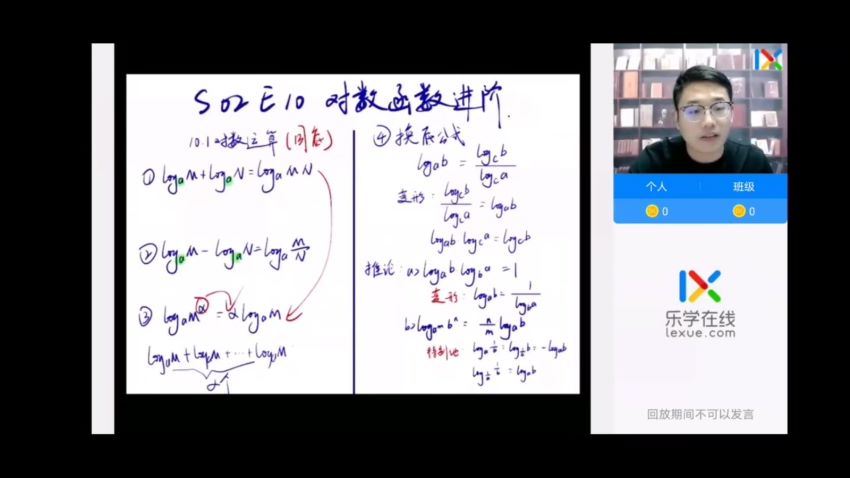 S02E10 对数函数进阶.
10.1 对数运算 (同底)
① logₐM + logₐN = logₐMN
② logₐM - logₐN = logₐ M/N
③ logₐM^α = α logₐM
logₐM + logₐM + ⋯ + logₐM
α个
④ 换底公式
logₐb = log_c b / log_c a
变形: log_c b / log_c a = logₐb
logₐb log_c a = log_c b
推论: a> logₐb log_b a = 1
变形: logₐb = 1 / log_b a
b> log_{a^m} b^n = n/m logₐb
特别地 logₐ 1/b = log_{1/a} b = -logₐb
log_{1/a} 1/b = logₐb
个人 班级
0 0
乐学在线
lexue.com
回放期间不可以发言